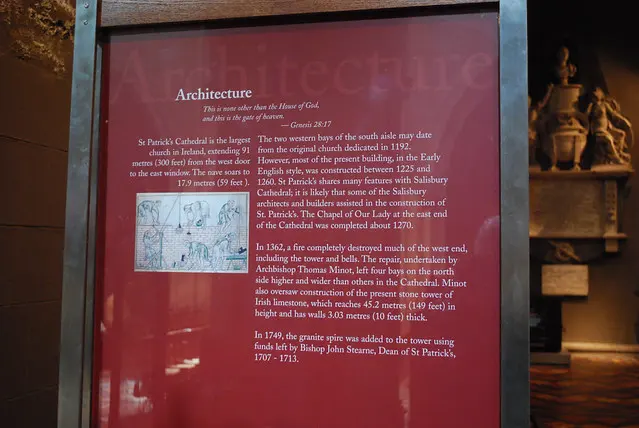 Architecture
Architecture
This is none other than the House of God,
and this is the gate of heaven.
— Genesis 28:17
St Patrick's Cathedral is the largest
church in Ireland, extending 91
metres (300 feet) from the west door
to the east window. The nave soars to
17.9 metres (59 feet ).
The two western bays of the south aisle may date
from the original church dedicated in 1192.
However, most of the present building, in the Early
English style, was constructed between 1225 and
1260. St Patrick's shares many features with Salisbury
Cathedral; it is likely that some of the Salisbury
architects and builders assisted in the construction of
St. Patrick's. The Chapel of Our Lady at the east end
of the Cathedral was completed about 1270.
In 1362, a fire completely destroyed much of the west end,
including the tower and bells. The repair, undertaken by
Archbishop Thomas Minot, left four bays on the north
side higher and wider than others in the Cathedral. Minot
also oversaw construction of the present stone tower of
Irish limestone, which reaches 45.2 metres (149 feet) in
height and has walls 3.03 metres (10 feet) thick.
In 1749, the granite spire was added to the tower using
funds left by Bishop John Stearne, Dean of St Patrick's,
1707 - 1713.